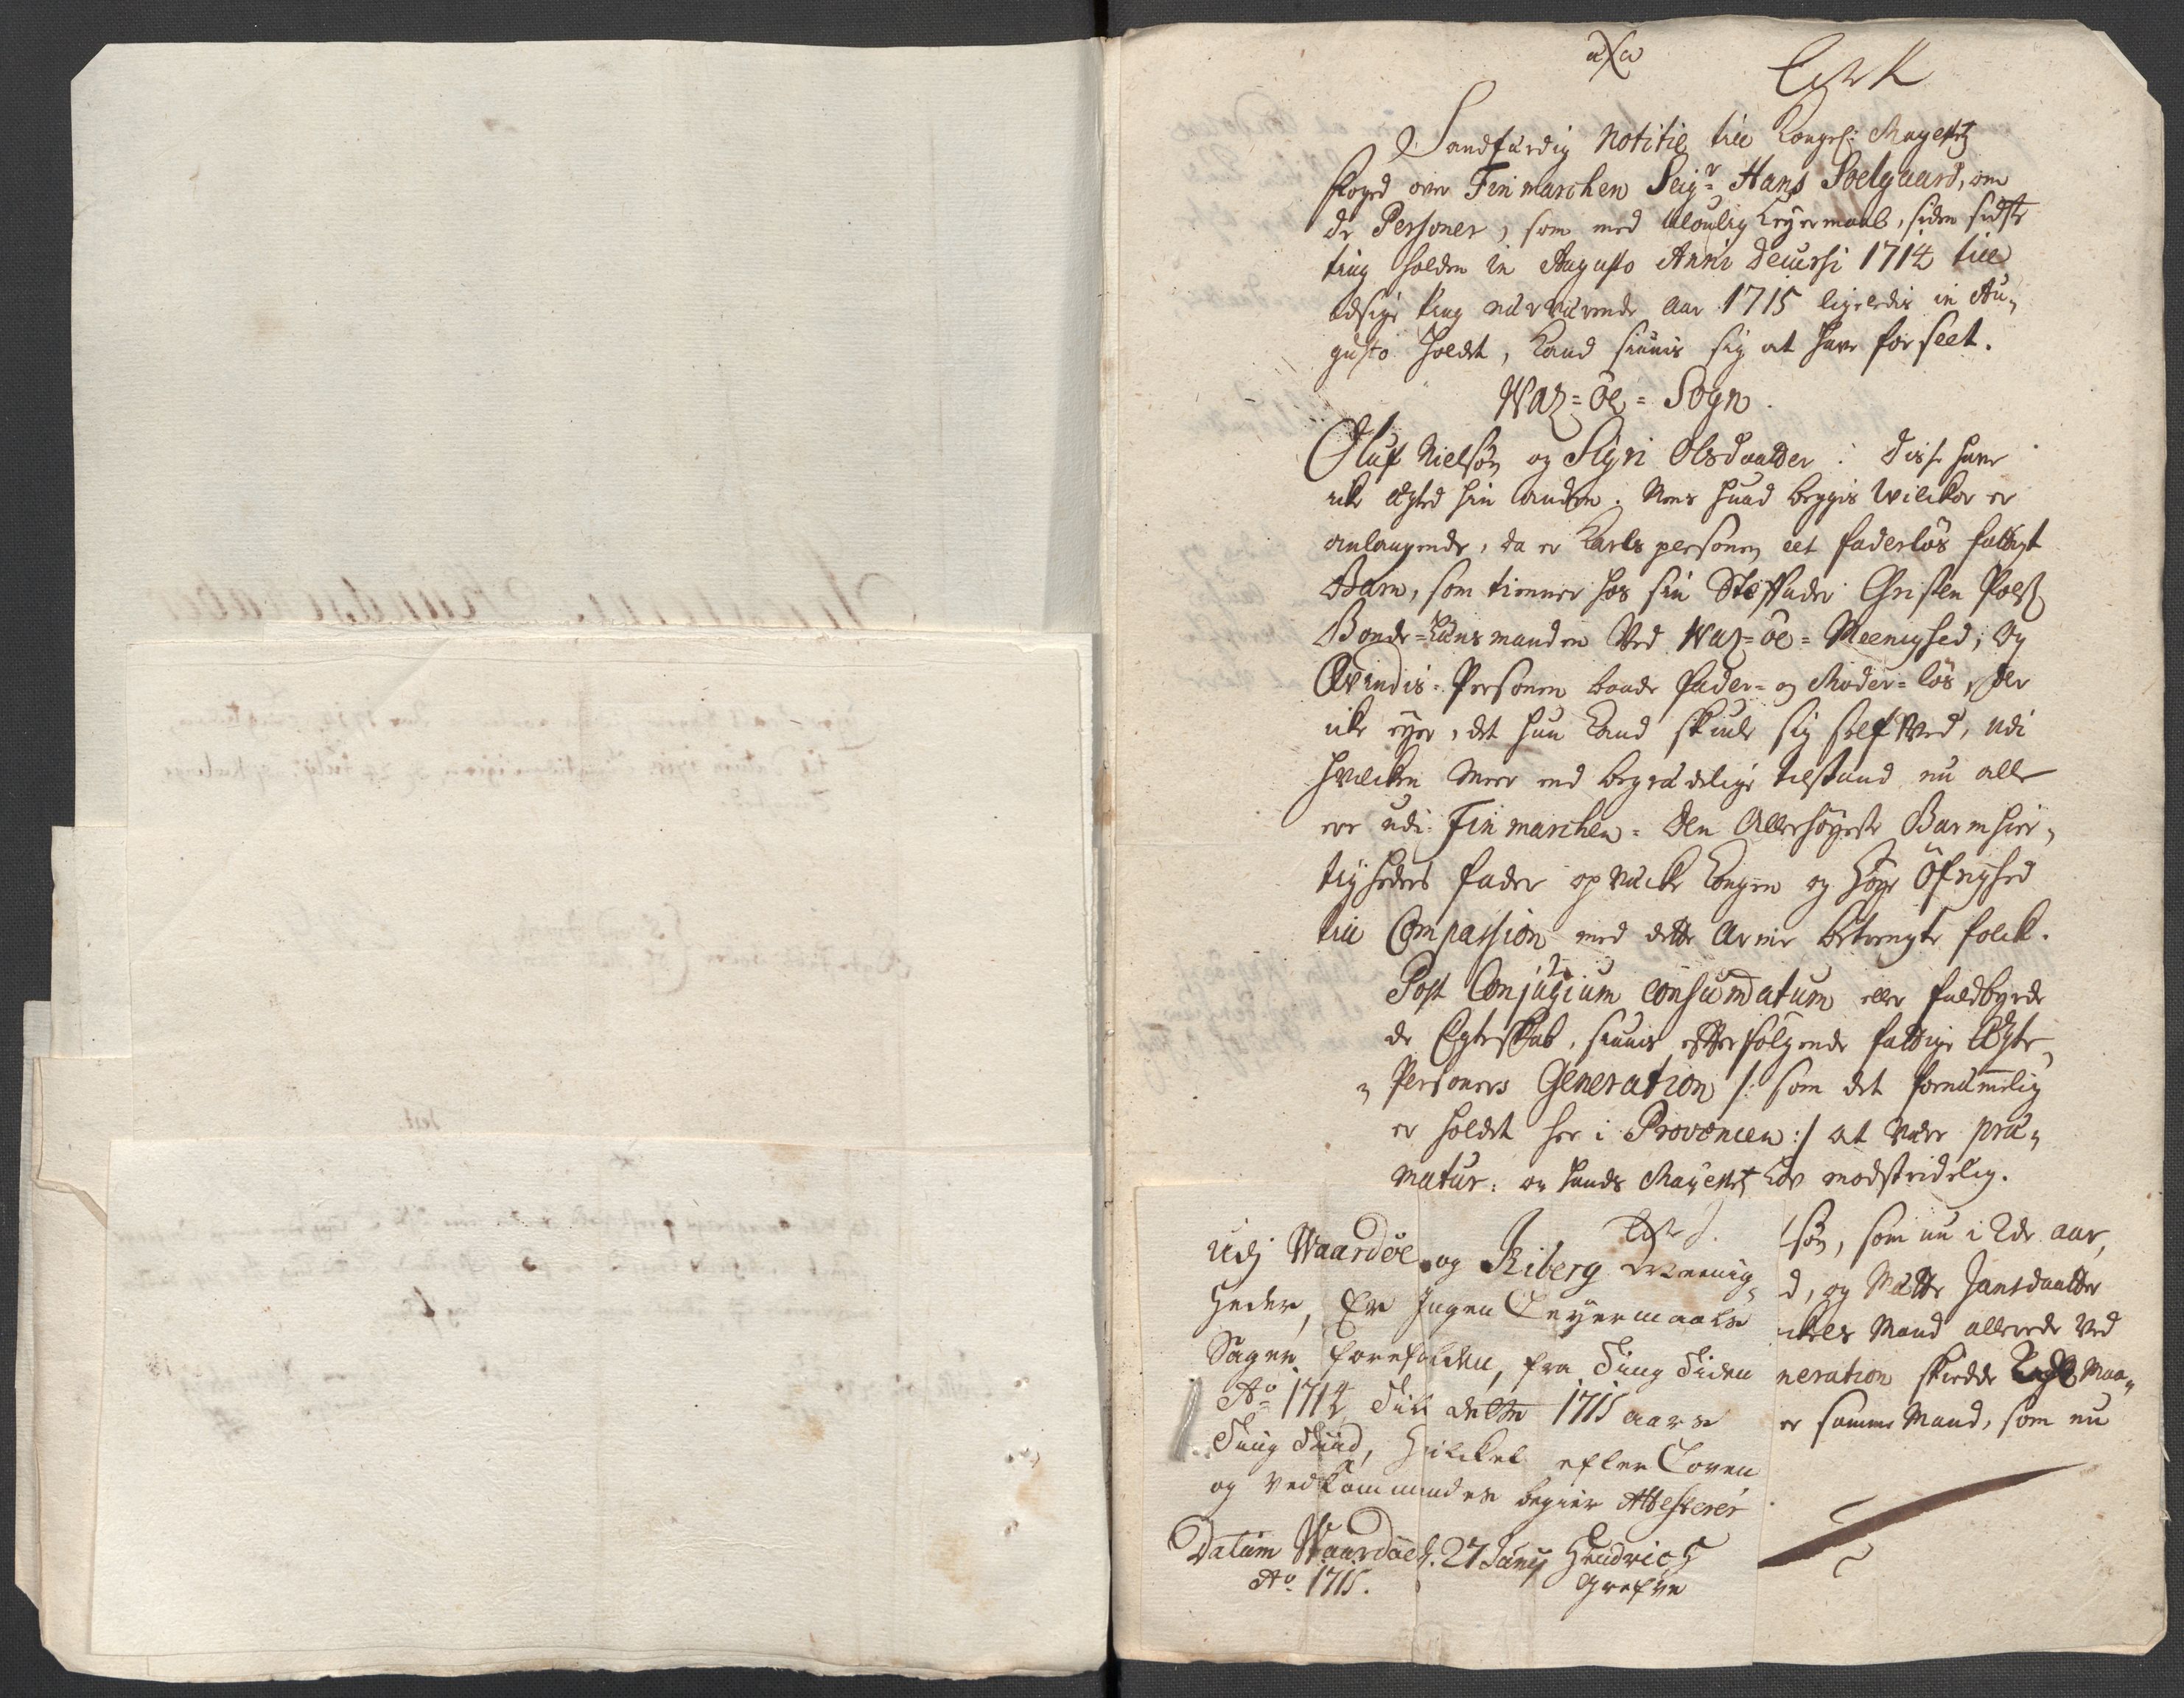 Sandfærdig Notitie till Kongel: Mayestz
foged over Finmarchen Seigr: Hans Soelgaard, om
de Personer, som med ulovlig Leyermaal, siden sidste
ting holden in Augusto Anni decursi 1714 till
dette ting nærværende aar 1715 ligeledis in Au-
gusto holdet, kand findis sig at have forseet.
Waz=öe=Sogn.
Oluf Nielsön og Sigri Olsdaatter: disse have
icke ægted hin anden. Men hvad begges Vilckor er
anlangende, da er Karls personen eet faderlös fattigt
Barn, som tienner hos sin Steffader Christen Poels
Bonde=Lænsmanden Ved Waz=öe=Meenighed; Og
Qvindis=Personen baade fader= og Moder=lös, der
icke eyer, det hun kand skiule sig self Med, udi
hvilcken meer end begrædelige tilstand nu alle
ere udi Finmarchen. Den Allerhöyeste Barmhier-
tigheders fader opvæcke Kongen og höye Öfrighed
till Compassion med dette arme betrengte folck.
Post Conjugium Consummatum eller fuldbyrde
de Egteskab, findis effterfölgende fattige Ægte
Personers Generation /: som det fornemmelig
er holdet her i Provincien :/ at være præ-
matur: og hands Mayestz Lov modstridelig.
sön, som nu i 2de aar,
d, og Mætte Jansdaatter
ickels Mand allerede ved
neration skiedde Maa-
er samme Mand, som nu
Udj Waardöe og Kiberg Meenig-
heder, Er Ingen Leyermaals
Sager forefalden, fra Ting Tiden
Ao 1714 Till dette 1715 aars
Ting Tiid, Hvilcket efter Loven
og vedkommendes begier Attesterer
Datum Waardöe d. 27 Junij Hendrich
Ao 1715. Grefve